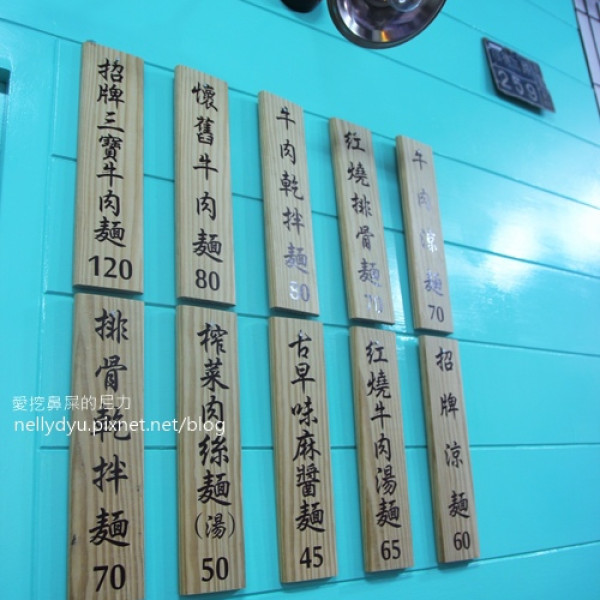 招牌三寶牛肉麵 120
懷舊牛肉麵 80
牛肉乾拌麵 90
紅燒排骨麵 70
牛肉涼麵 70
排骨乾拌麵 70
榨菜肉絲麵(湯) 50
古早味麻醬麵 45
紅燒牛肉湯麵 65
招牌涼麵 60
愛挖鼻屎的尼力
nellydyu.pixnet.net/blog